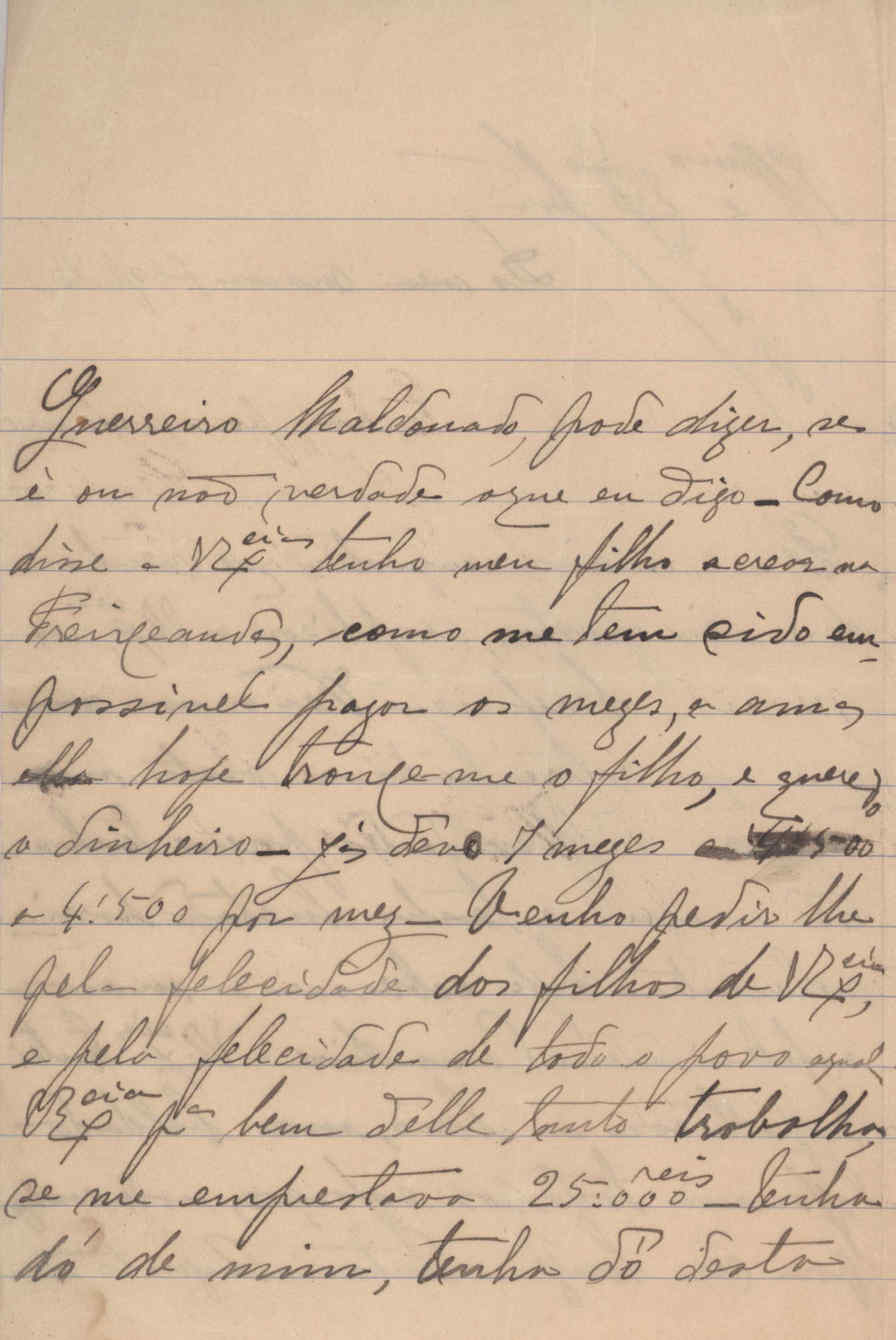 Guerreiro Maldonado, pode dizer, se
è ou não verdade oque eu digo – Como
disse a VExcias tenho meu filho a crear na
Freixeanda, como me tem sido em-
possivel pagar os mezes, a ama
hoje trouxe-me o filho, e quere
o dinheiro – já devo 7 mezes a 4:500
a 4:500 por mez – Venho pedir lhe
pela felecidade dos filhos de VExcia,
e pela felecidade de todo o povo aqual
VExcia pa bem delle tanto trabalha,
se me emprestava 25:000 reis – tenha
dó de mim, tenha dó desta